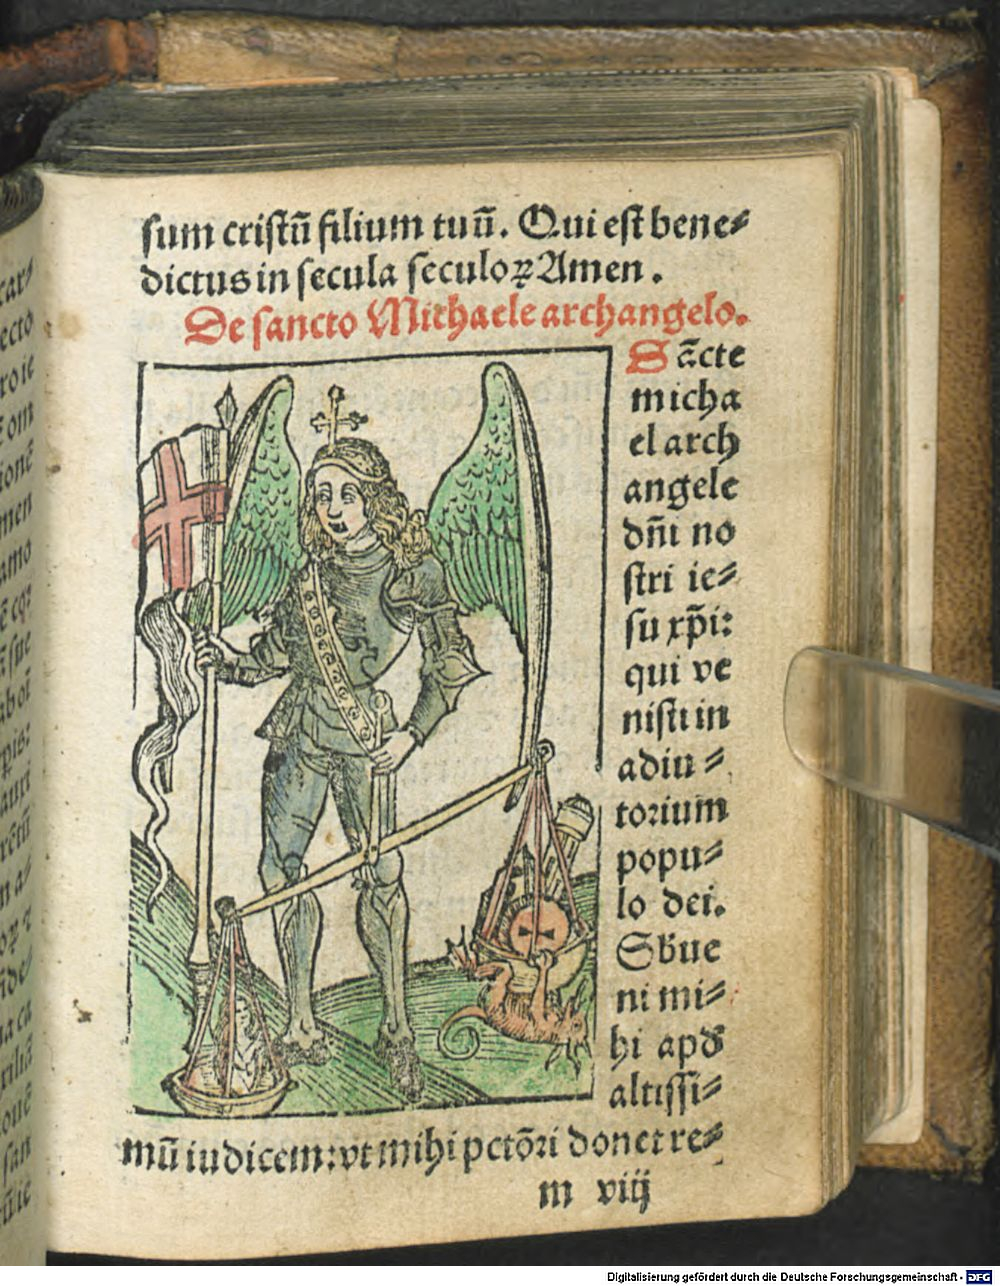 sum cristū filium tuū. Qui est bene⸗
dictus in secula seculoꝝ Amen.
De sancto Michaele archangelo.
Sācte
micha
el arch
angele
dn̄i no
stri ie⸗
su xp̄i:
qui ve
nisti in
adiu⸗
torium
popu⸗
lo dei.
Sb̄ue
ni mi⸗
hi apd̕
altissi⸗
mū iudicem: vt mihi pctōri donet re⸗
m viij
Digitalisierung gefördert durch die Deutsche Forschungsgemeinschaft - DFG